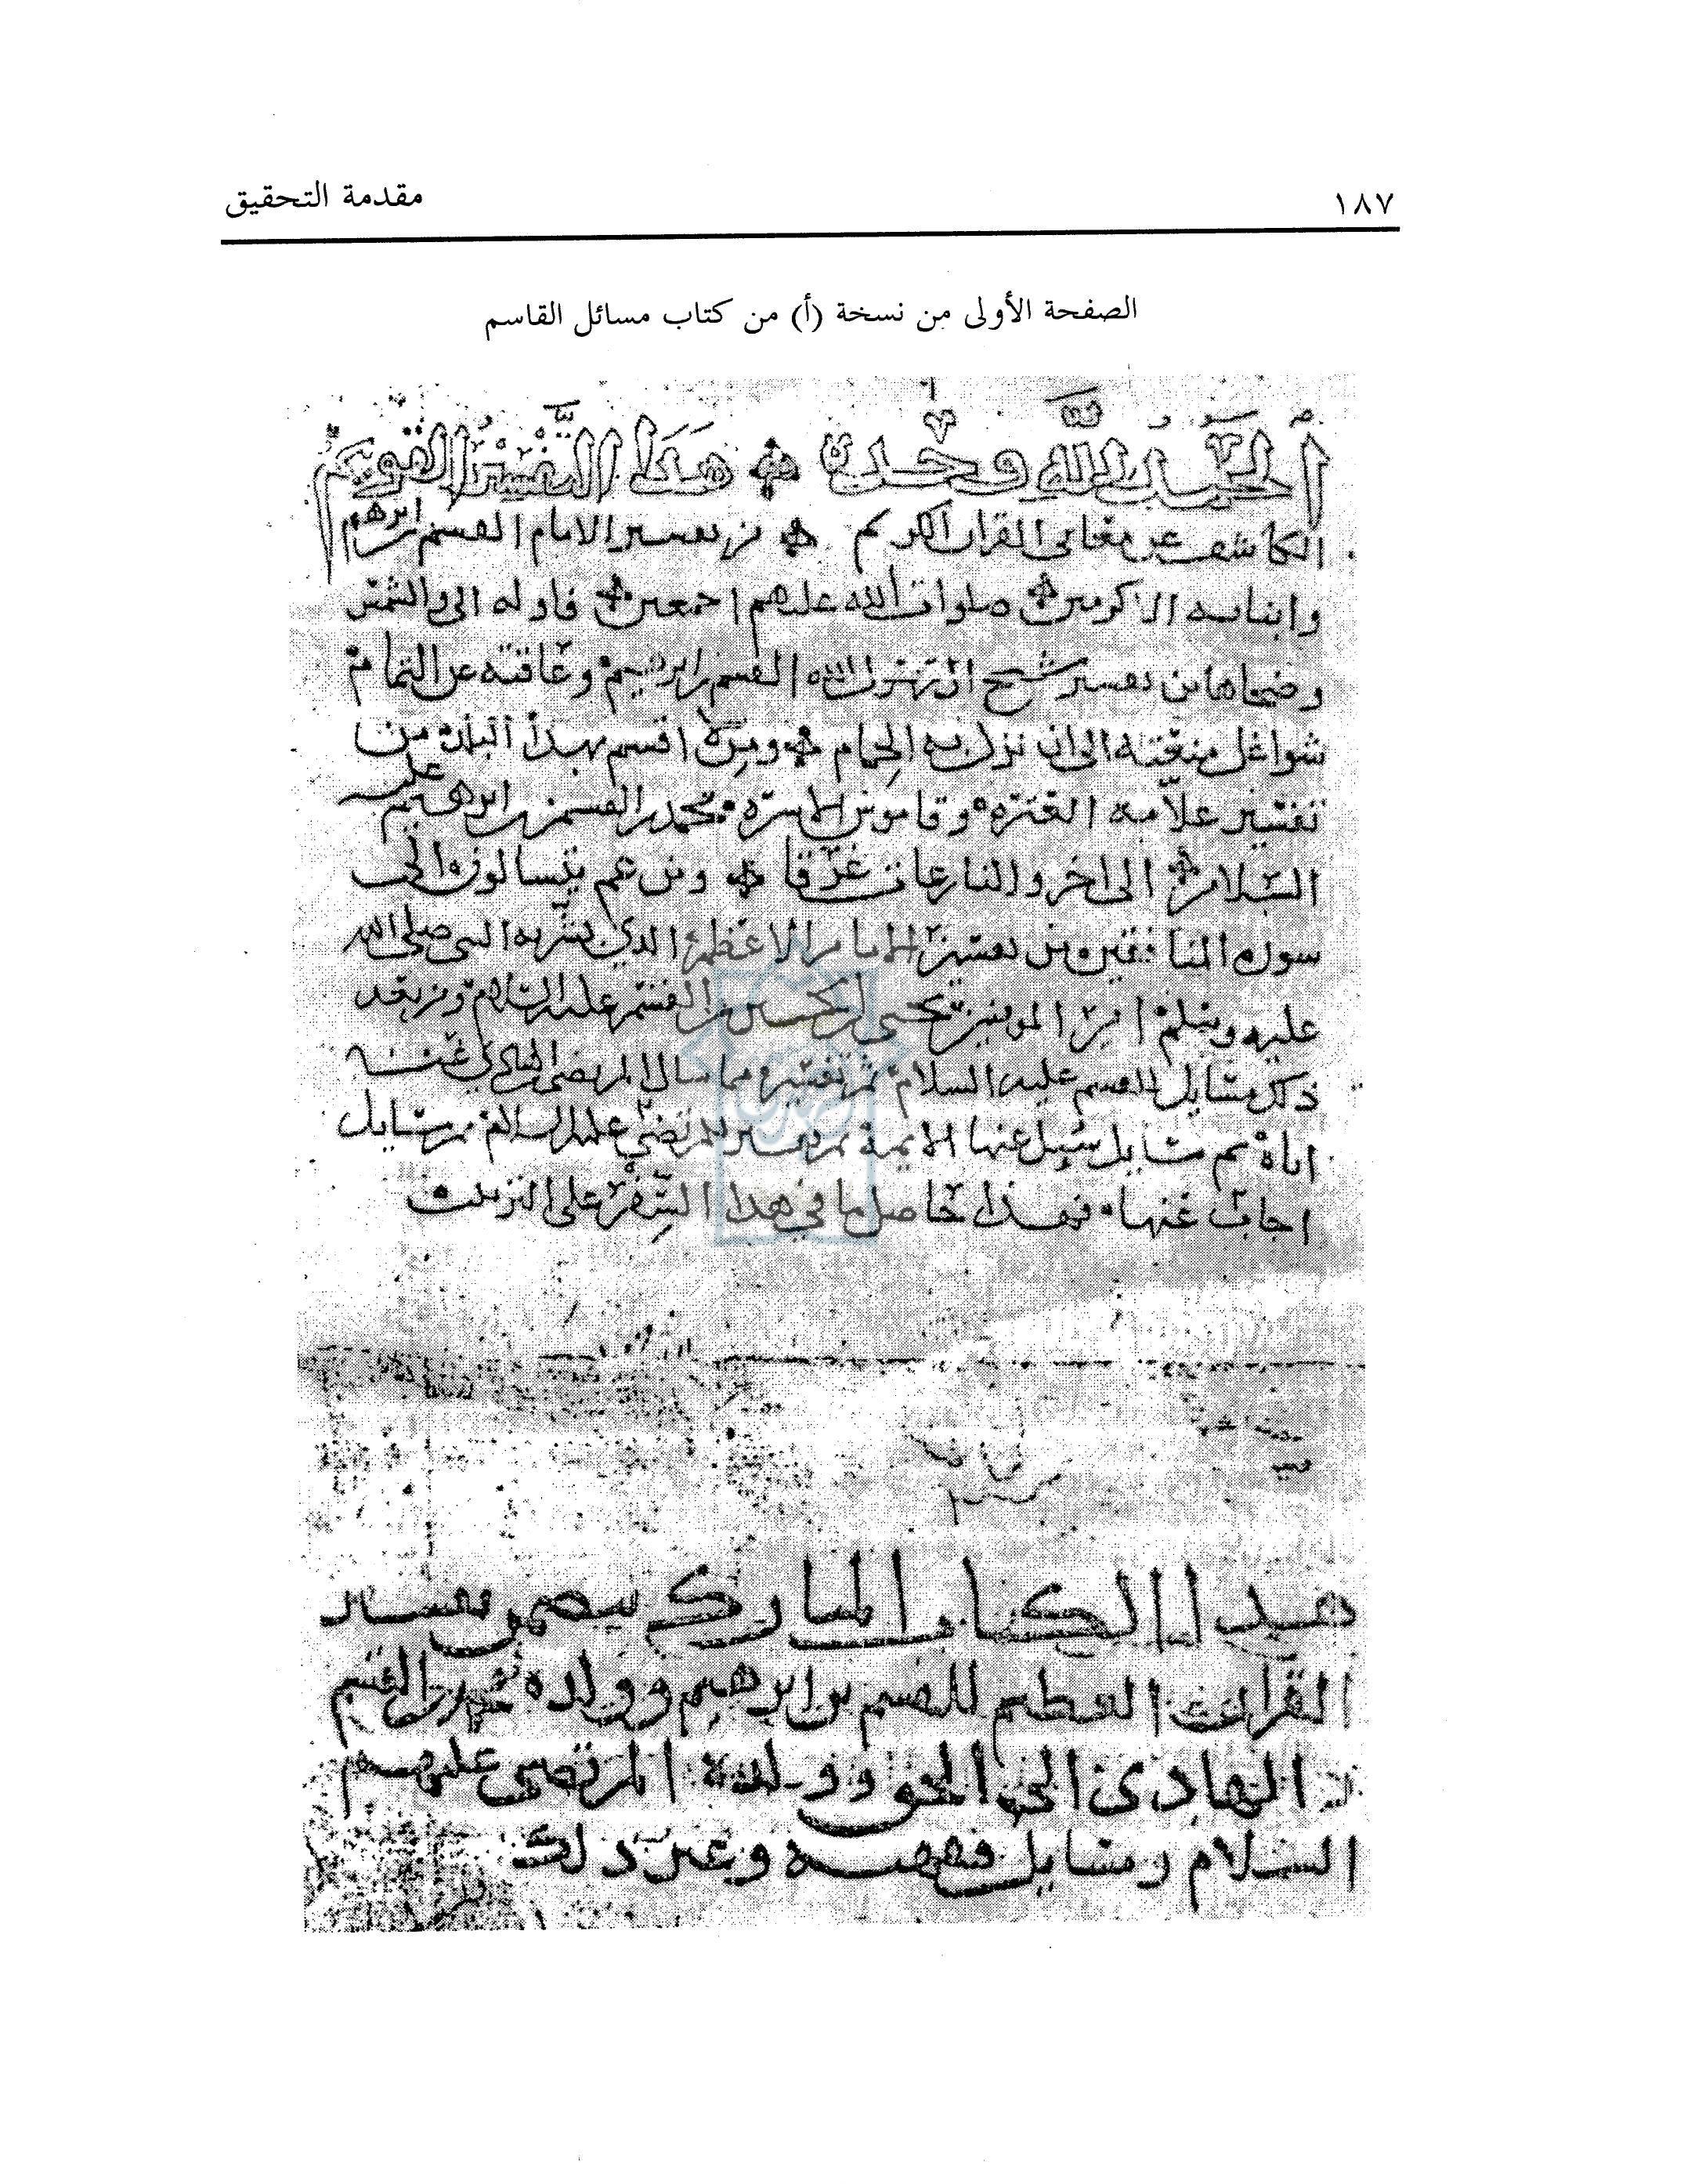 مقدمة التحقيق
١٨٧
الصفحة الأولى من نسخة (أ) من كتاب مسائل القاسم
الحمد لله وحده هذا التفسير القويم
الكاشف عن معاني القران الكريم من تفسير الامام القسم بن ابرهيم
وابنايه الاكرمين صلوات الله عليهم اجمعين فاوله الى والشمس
وضحاها من تفسير شيخ ال رسول الله القسم بن ابرهيم وعاقته عن التمام
شواغل منعته الى ان نزل به الحمام ومن لا اقسم بهذا البلد من
تفسير علامة العترة وقاموس الاسرة محمد بن القسم بن ابرهيم عليه
السلام الى اخر والنازعات غرقا ومن عم يتسالون الى
سورة المنافقين من تفسير الامام الاعظم الذي بشر به النبي صلى الله
عليه وسلم امير المومنين يحيى بن الحسين بن القسم عليه السلام ومن بعد
ذلك مسايل للقسم عليه السلام ثم تفسير مما سال المرتضى الهادي عنه
اباه ثم مسايل سيل عنها الايمة ثم تفسير للمرتضى عليه السلام ثم مسايل
اجاب عنها فهذا حاصل ما في هذا السفر على التنزيل
هدا الكتاب المبارك تفسير
القران العظيم للقسم بن ابرهيم وولده محمد بن القسم
الهادي الى الحق وولده المرتضى عليهم
السلام ومسايل فقهيه وغير دلك